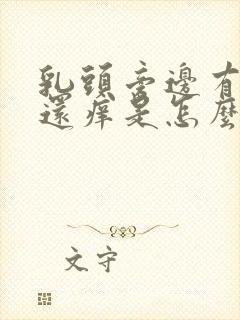 乳頭旁邊有
還痒是怎麼
文守